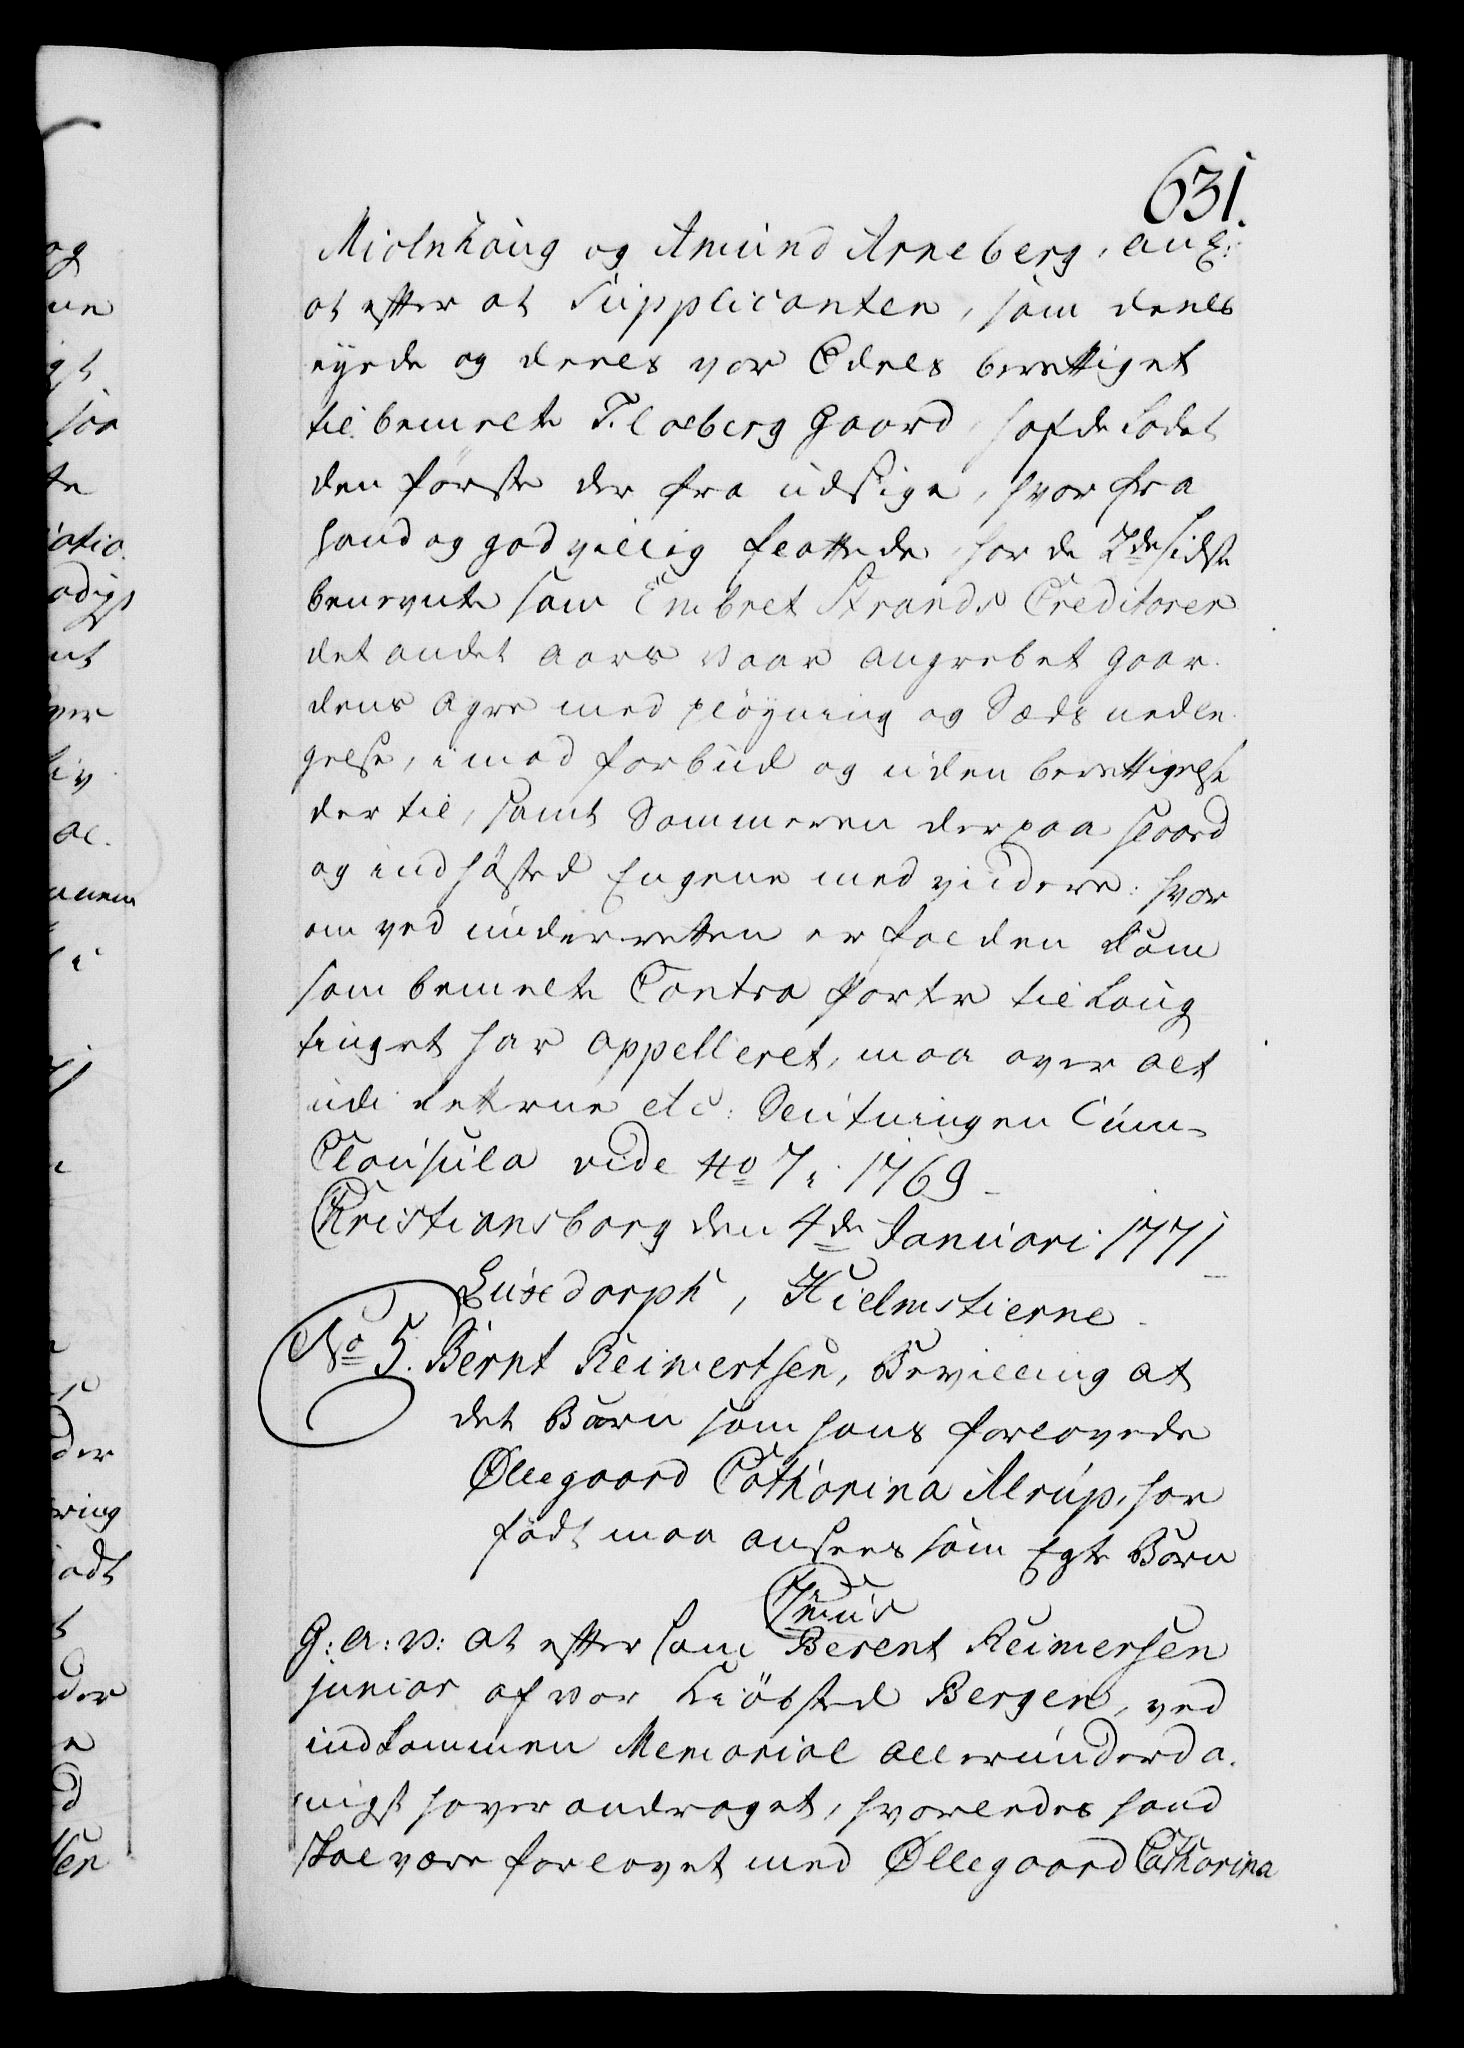 631.
Miolnhoug og Amund Arneberg, ang:
at efter at Supplicanten, som deels
eyede og deels var Odels berettiget
til bemelte Floeberg Gaard, hafde ladet
den første der fra udsige, hvor fra
hand og godvillig fløttede, har de 2de sidst
benevnte som Embret Strands Creditorer
det andet Aars Vaar angrebet gaar-
dens Agre med pløyning og Sæds nedle-
gelse, imod forbud og uden berettigelse
der til, samt Sommeren derpaa slaaed
og indhøsted Engene med videre: hvor
om ved underretten er falden Dom
som bemelte Contra Parter til Laug
tinget har appelleret, maa over alt
udi retterne etc: Slutningen Cum
Clausula vide No 7 i 1769
Christiansborg den 4de Januari 1771
Luxdorph, Hielmstierne
No 5. Bernt Reimertsen, Bevilling at
det Barn som hans forlovede
Øllegaard Catharina Alrup, har
født maa ansees som Egte Barn
G: A: V: at eftersom Berent Reimersen
junior af vor Kiöbsted Bergen, ved
indkommen Memorial allerunderda-
nigst haver andraget, hvorledes hand
skal være forlovet med Øllegaard Catharina